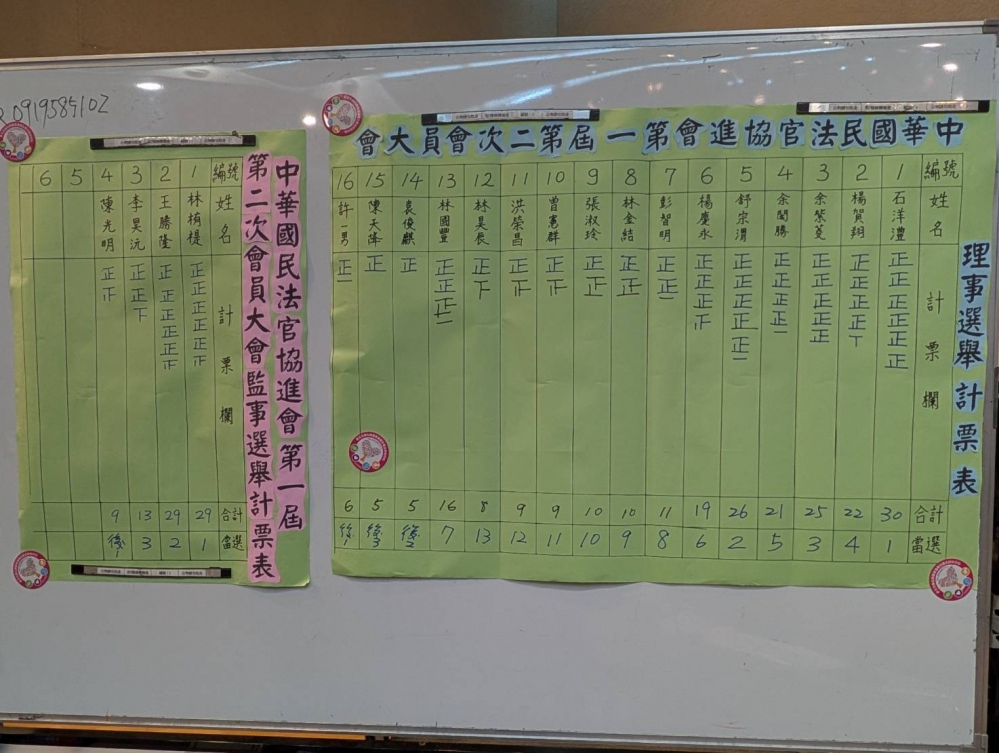 0919585102
中華國民法官協進會第一屆
第二次會員大會監事選舉計票表
編號 1 2 3 4 5 6
姓名 林楀樞 王勝隆 李昊沅 陳光明
計票欄
正正正正正正
正正正正正正
正正下
正正
合計 29 29 13 9
當選 1 2 3 後1
中華國民法官協進會第一屆第二次會員大會
理事選舉計票表
編號 1 2 3 4 5 6 7 8 9 10 11 12 13 14 15 16
姓名 石洋澧 楊賀翔 余縈菱 余閎勝 舒宗渭 楊慶永 彭智明 林金結 張淑玲 曾憲群 洪榮昌 林昊辰 林國豐 袁俊麒 陳天降 許一男
計票欄
正正正正正正
正正正正丅
正正正正正
正正正正一
正正正正正一
正正正正
正正一
正正
正正
正正
正正
正下
正正正一
正
正
正一
合計 30 22 25 21 26 19 11 10 10 9 9 8 16 5 5 6
當選 1 4 3 5 2 6 8 9 10 11 12 13 7 後2 後3 後1